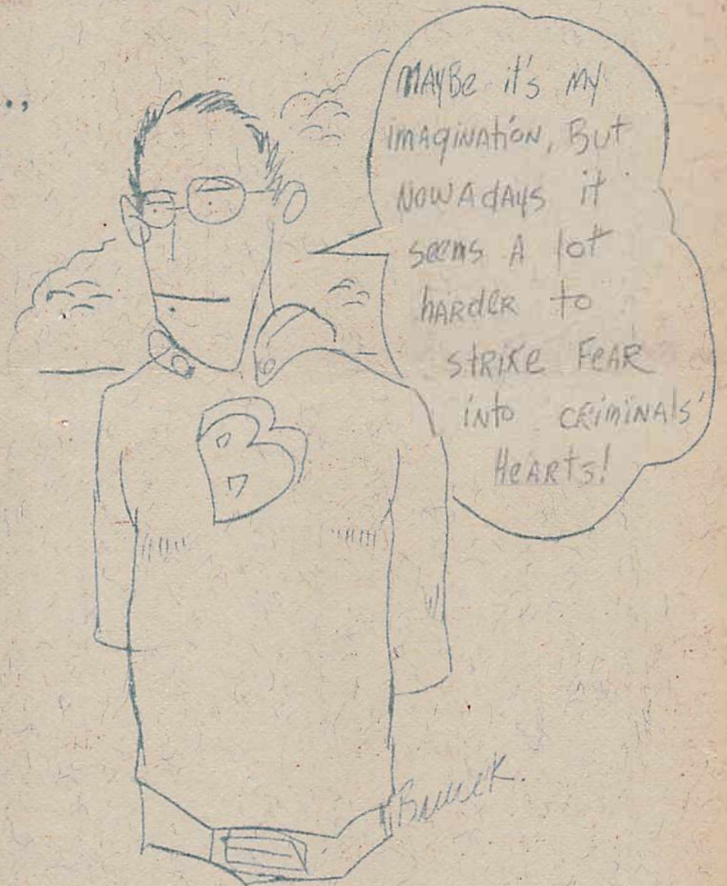 MAYBE it's MY
IMAGINATION, BUT
NOWADAYS it
seems A lot
HARDER to
STRIKE FEAR
INTO CRIMINALS'
HEARTS!
B